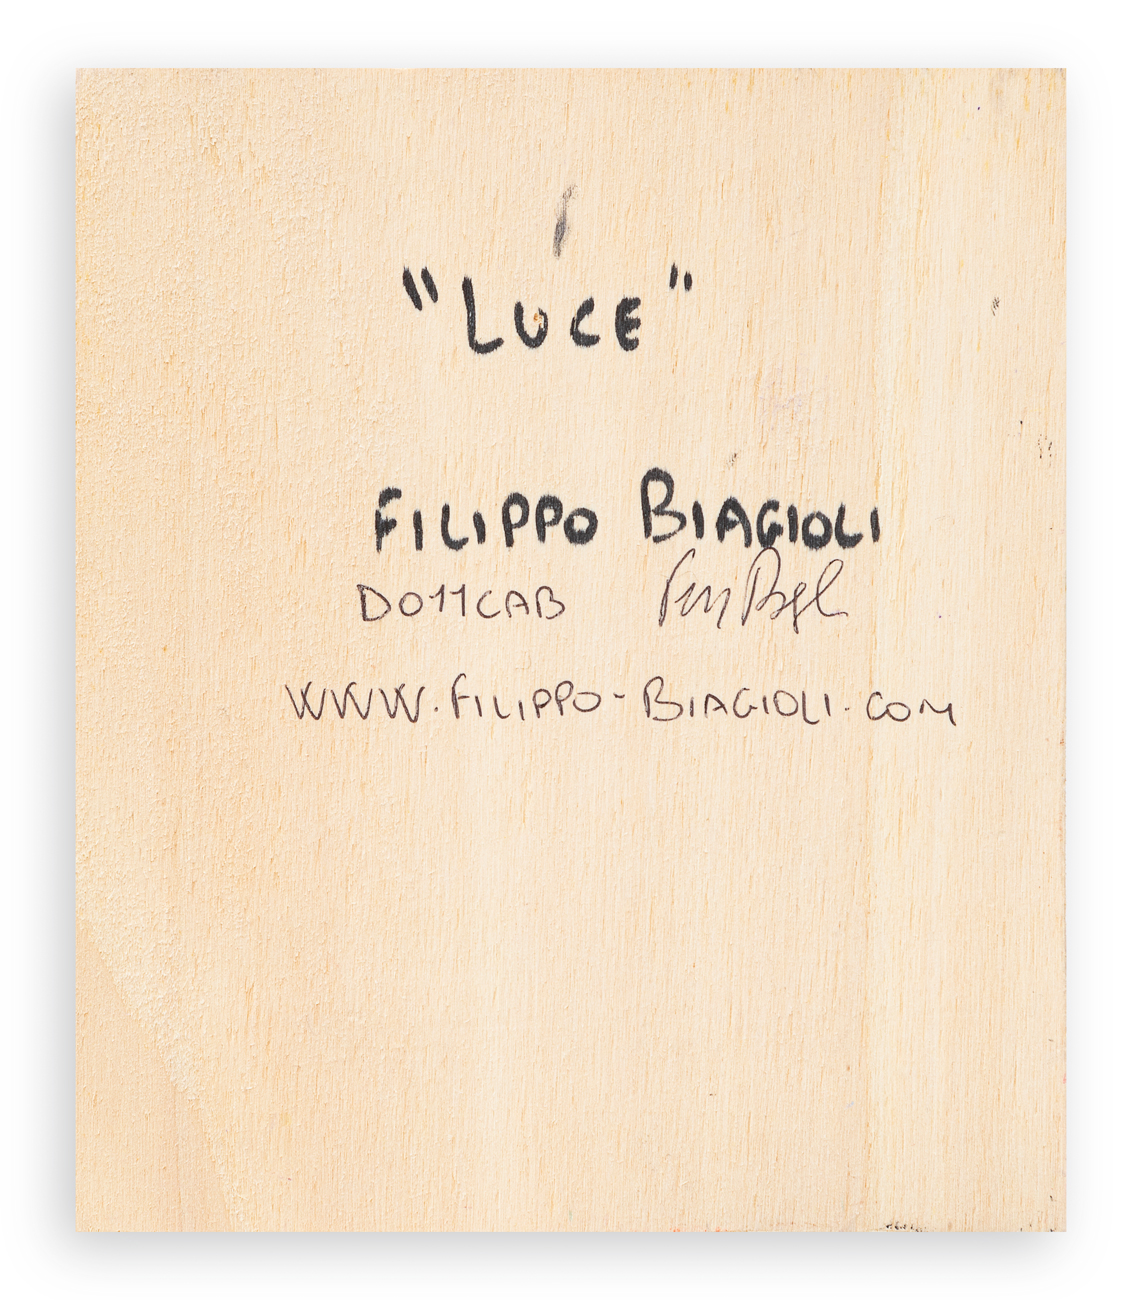 "LUCE"
FILIPPO BIAGIOLI
D011CAB
WWW.FILIPPO-BIAGIOLI.COM